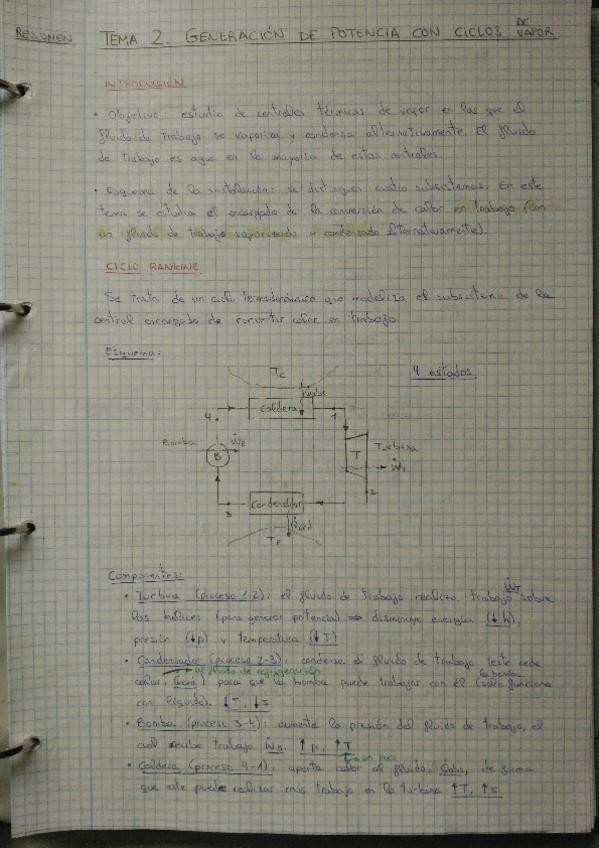 RESUMEN TEMA 2. GENERACIÓN DE POTENCIA CON CICLOS DE VAPOR
INTRODUCCIÓN
• Objetivo: estudio de centrales térmicas de vapor en las que el
fluido de trabajo se vaporiza y condensa alternativamente. El fluido
de trabajo es agua en la mayoría de estas centrales.
• Esquema de la instalación: se distinguen cuatro subsistemas. En este
tema se estudia el encargado de la conversión de calor en trabajo (con
un fluido de trabajo vaporizando y condensado alternativamente).
CICLO RANKINE
Se trata de un ciclo termodinámico que modeliza el subsistema de la
central encargado de convertir calor en trabajo
Esquema:
4 estados
Tc
Q̇abs
4
Caldera
1
Bomba
ẆB
B
T
Turbina
ẆT
2
3
Condensador
Q̇ced
TF
Componentes:
• Turbina (proceso 1-2): el fluido de trabajo realiza trabajo ẆT sobre
los hélices (para generar potencia) ⇒ disminuye energía (↓h),
presión (↓p) y temperatura (↓T)
• Condensador (proceso 2-3): condensa el fluido de trabajo (este cede
al fluido de refrigeración
la bomba
calor, Q̇ced) para que la bomba pueda trabajar con él (solo funciona
con líquido). ↓T, ↓s
• Bomba (proceso 3-4): aumenta la presión del fluido de trabajo, el
cual recibe trabajo ẆB. ↑p, ↑T
un poco
• Caldera (proceso 4-1): aporta calor al fluido, Q̇abs, de forma
que este puede realizar más trabajo en la turbina ↑T, ↑s